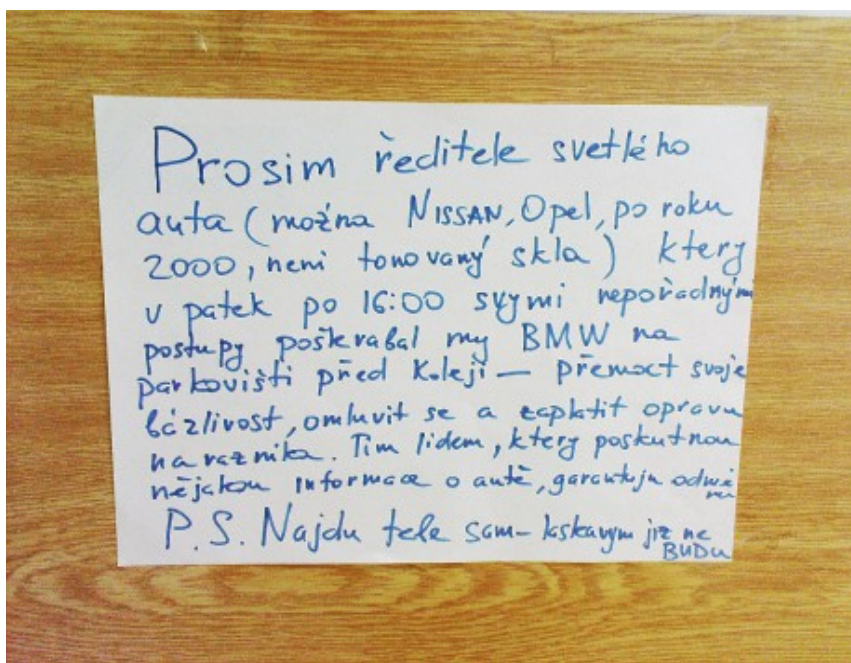 Prosim ředitele svetlého
auta (možna NISSAN, Opel, po roku
2000, neni tonovaný skla) ktery
v patek po 16:00 svymi nepořadnými
postupy poškrabal my BMW na
parkovišti před Koleji — přemoct svoje
bázlivost, omluvit se a zaplatit opravu
naraznika. Tim lidem, ktery poskutnou
nějakou informace o autě, garantuju odměnu
P.S. Najdu tele sam - laskavym již ne
BUDU